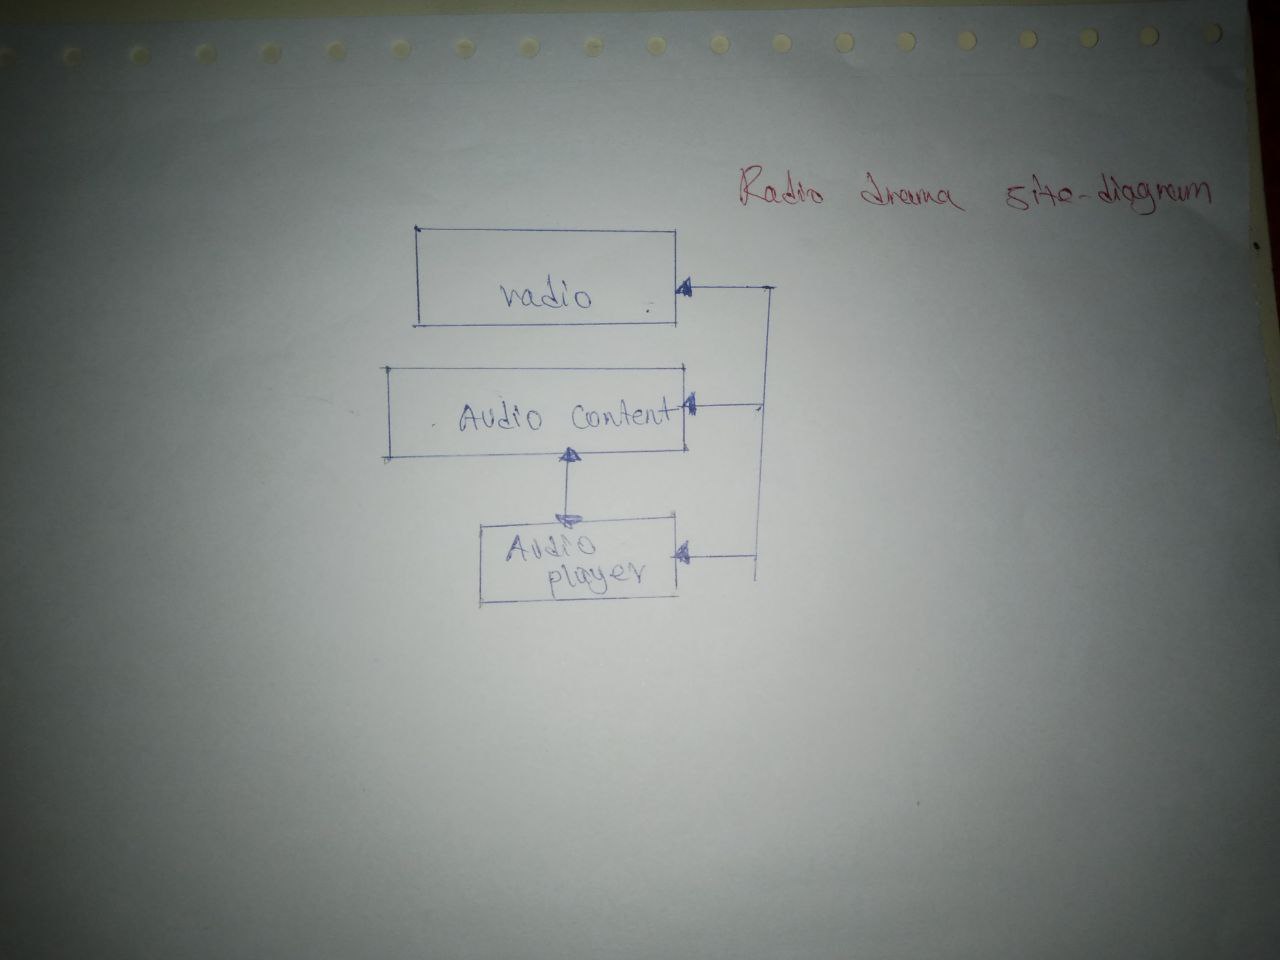 Radio drama site-diagram
radio
Audio Content
Audio
player